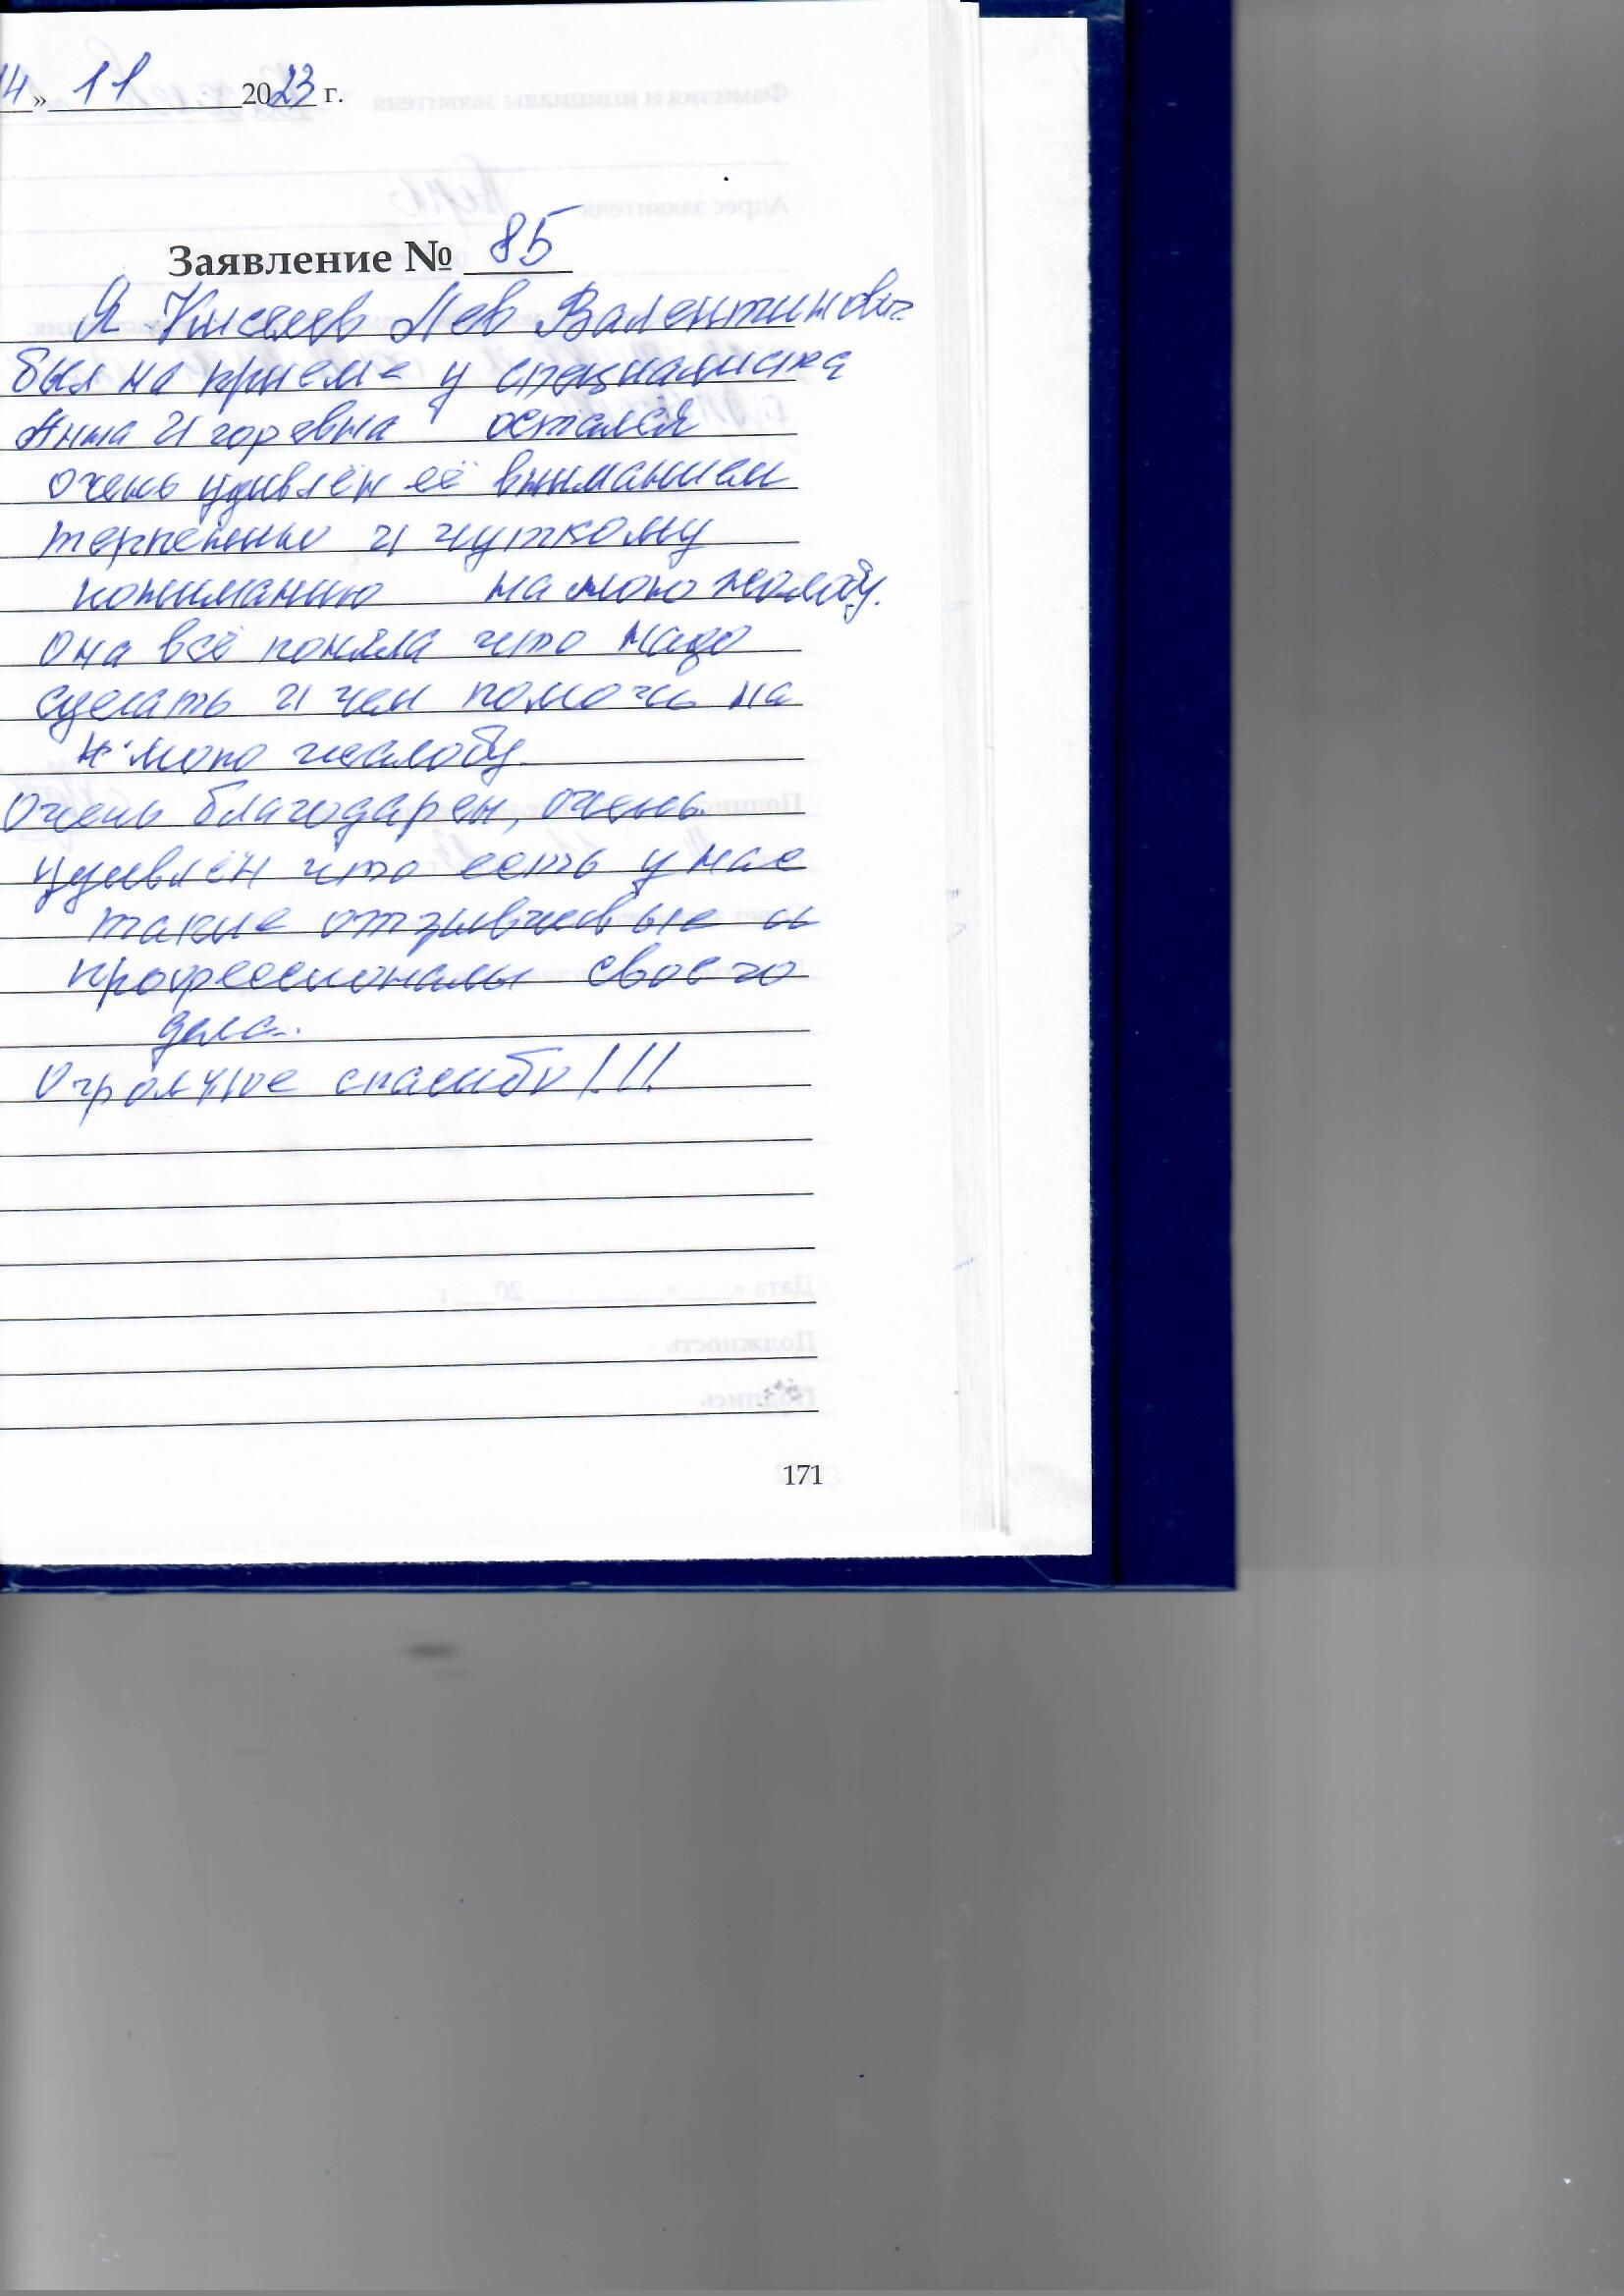 14 » 11 2023 г.
Заявление № 85
Я Киселев Лев Валентинович
был на приеме у специалиста
Анна Игоревна остался
очень удивлён её вниманием
терпению и чуткому
пониманию на мою жалобу.
Она всё поняла что надо
сделать и чем помочь на
н мою жалобу.
Очень благодарен, очень
удивлён что есть у нас
такие отзывчивые и
профессионалы своего
дела.
Огромное спасибо!!!
171